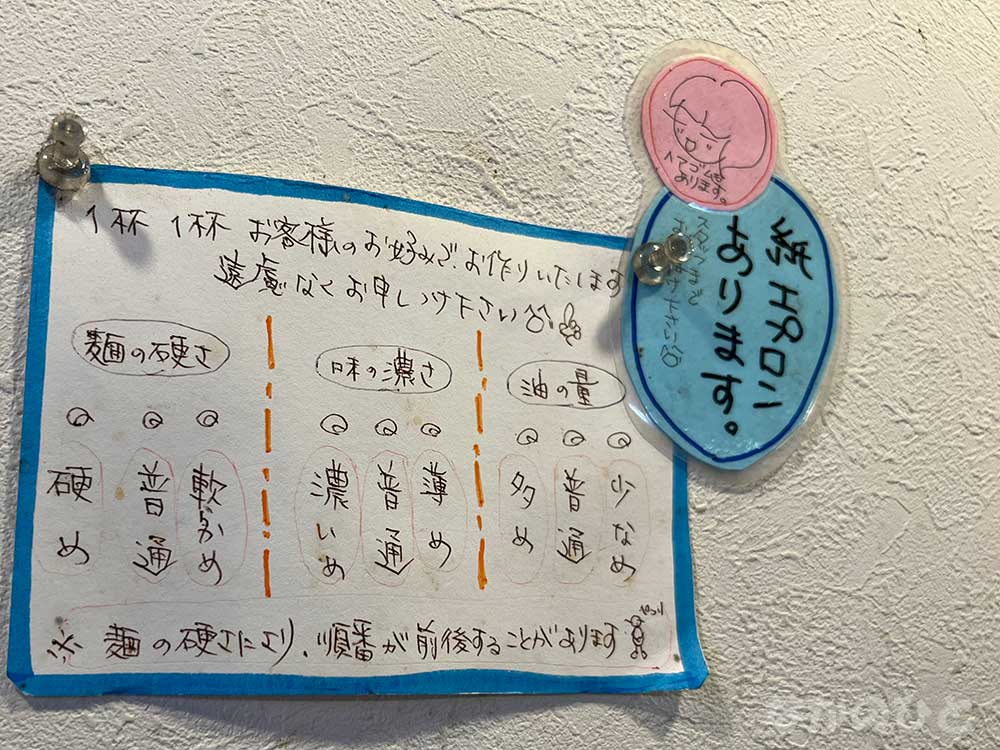 1杯1杯 お客様のお好みで、お作りいたします
遠慮なくお申しつけ下さい
麺の硬さ
硬め
普通
軟らかめ
味の濃さ
濃いめ
普通
薄め
油の量
多め
普通
少なめ
※ 麺の硬さにより、順番が前後することがあります
ヘアゴムも
あります。
紙エプロン
あります。
スタッフまで